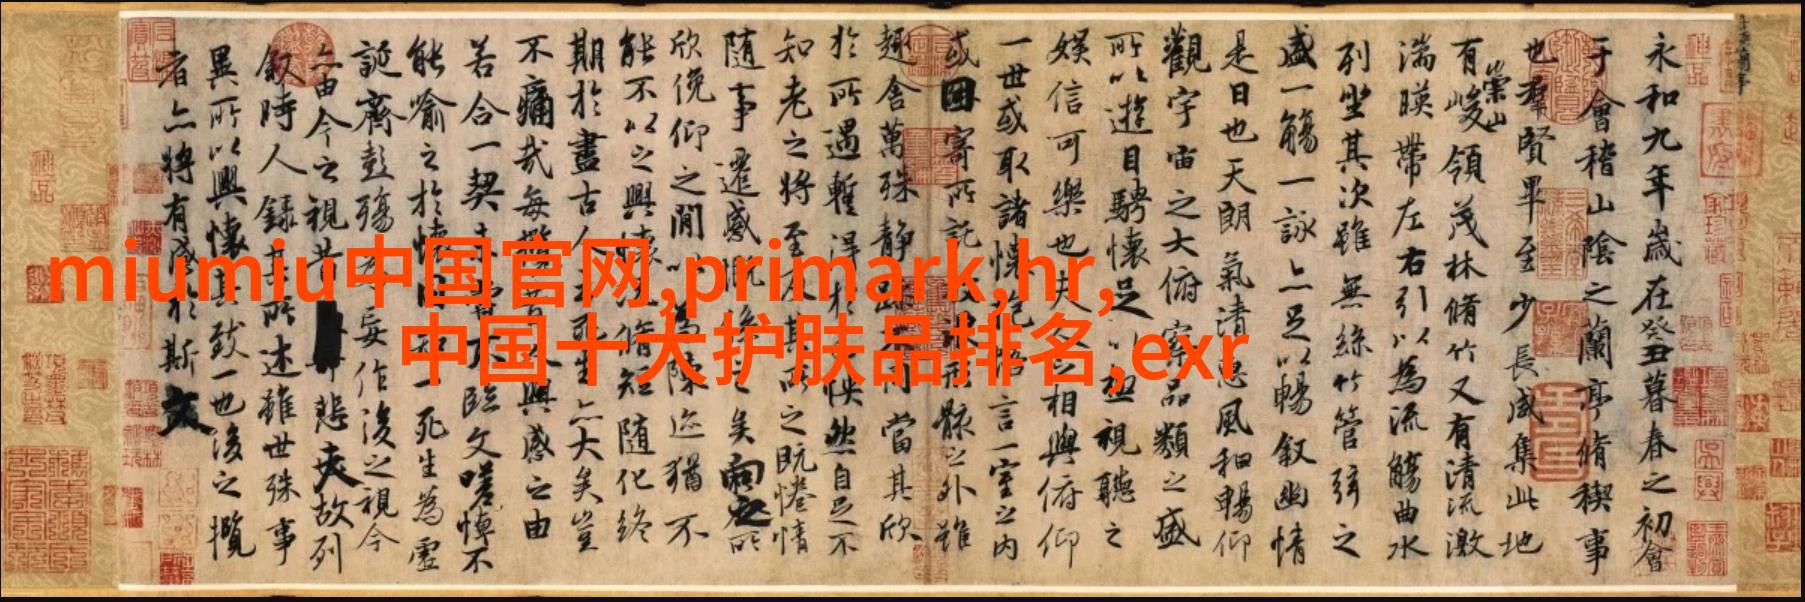 miumiu中国官网,primark,hr,
中国十大护肤品排名,exr
永和九年歲在癸丑暮春之初會
于會稽山陰之蘭亭脩稧事
也羣賢畢至少長咸集此地
有崇山峻領茂林脩竹又有清流激
湍暎帶左右引以為流觴曲水
列坐其次雖無絲竹管弦之
盛一觴一詠亦足以暢叙幽情
是日也天朗氣清惠風和暢仰
觀宇宙之大俯察品類之盛
所以遊目騁懷足以極視聽之
娛信可樂也夫人之相與俯仰
一世或取諸懷抱悟言一室之內
或因寄所託放浪形骸之外雖
趣舍萬殊靜躁不同當其欣
於所遇蹔得於己怏然自足不
知老之將至及其所之既惓情
隨事遷感慨係之矣向之所
欣俛仰之閒以為陳迹猶不
能不以之興懷況脩短隨化終
期於盡古人云死生亦大矣豈
不痛哉每攬昔人興感之由
若合一契未嘗不臨文嗟悼不
能喻之於懷固知一死生為虛
誕齊彭殤為妄作後之視今
亦由今之視昔悲夫故列
叙時人錄其所述雖世殊事
異所以興懷其致一也後之攬
者亦將有感於斯文